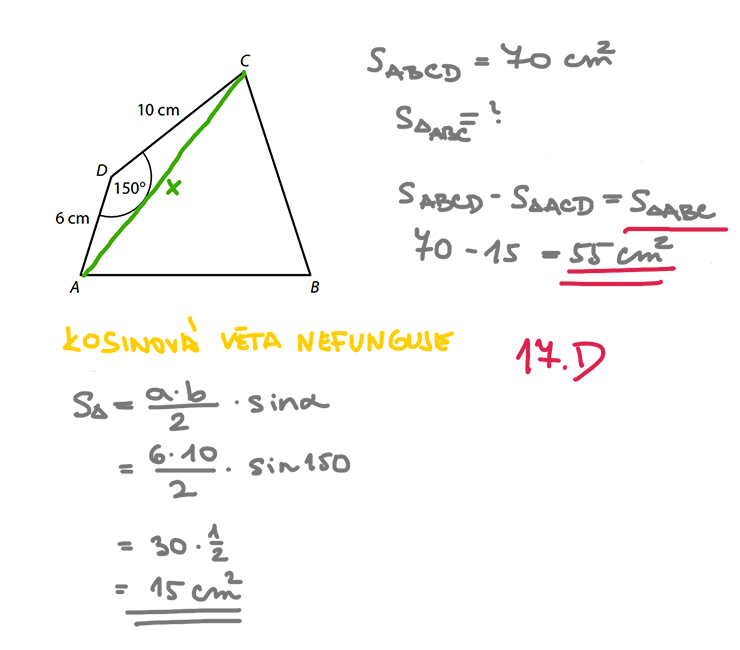 C
10 cm
D
150°
x
6 cm
A
B
S ABCD = 70 cm²
S ΔABC = ?
S ABCD - S ΔACD = S ΔABC
70 - 15 = 55 cm²
KOSINOVÁ VĚTA NEFUNGUJE
17.D
SΔ = a·b/2 · sinα
= 6·10/2 · sin150
= 30 · 1/2
= 15 cm²